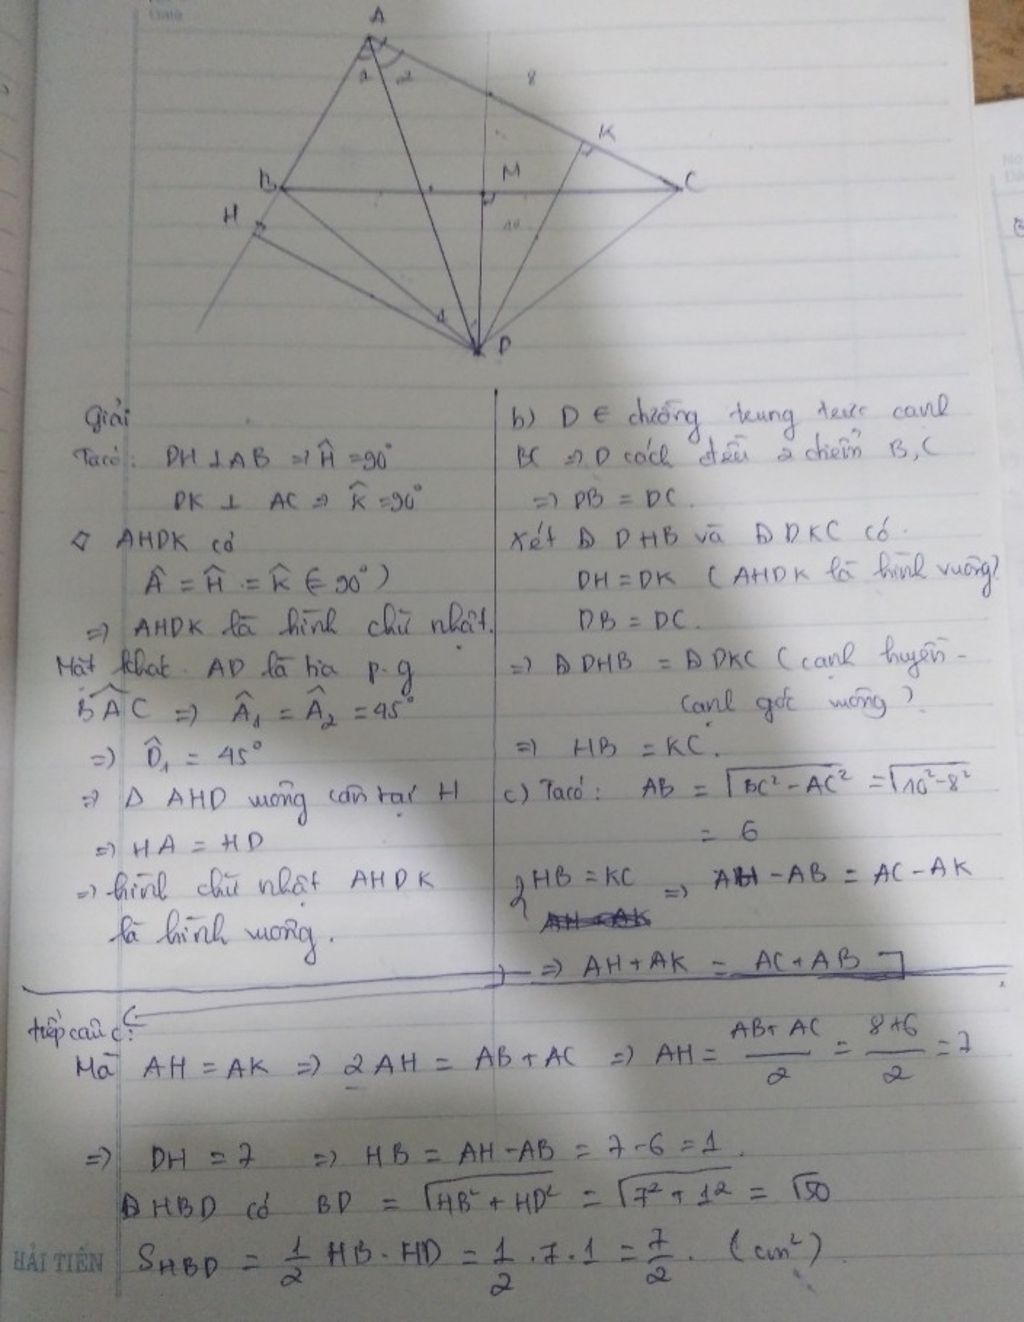 A
2
8
K
B
M
C
H
10
1
D
Giải
Ta có: DH ⊥ AB ⇒ Ĥ = 90°
DK ⊥ AC ⇒ K̂ = 90°
◇ AHDK có
Â = Ĥ = K̂ (= 90°)
⇒ AHDK là hình chữ nhật.
Mặt khác AD là tia p.g
BÂC ⇒ Â₁ = Â₂ = 45°
⇒ D̂₁ = 45°
⇒ Δ AHD vuông cân tại H
⇒ HA = HD
⇒ hình chữ nhật AHDK
là hình vuông.
b) D ∈ đường trung trực cạnh
BC ⇒ D cách đều 2 điểm B, C
⇒ DB = DC.
Xét Δ DHB và Δ DKC có.
DH = DK (AHDK là hình vuông)
DB = DC.
⇒ Δ DHB = Δ DKC (cạnh huyền -
cạnh góc vuông).
⇒ HB = KC.
c) Ta có: AB = √(BC² - AC²) = √(10² - 8²)
= 6
HB = KC ⇒ AH - AB = AC - AK
AH = AK
⇒ AH + AK = AC + AB
tiếp câu c:
Mà AH = AK ⇒ 2AH = AB + AC ⇒ AH = (AB + AC)/2 = (8+6)/2 = 7
⇒ DH = 7 ⇒ HB = AH - AB = 7 - 6 = 1.
Δ HBD có BD = √(HB² + HD²) = √(7² + 1²) = √50
S_HBD = 1/2 HB . HD = 1/2 . 7 . 1 = 7/2. (cm²)
HẢI TIẾN